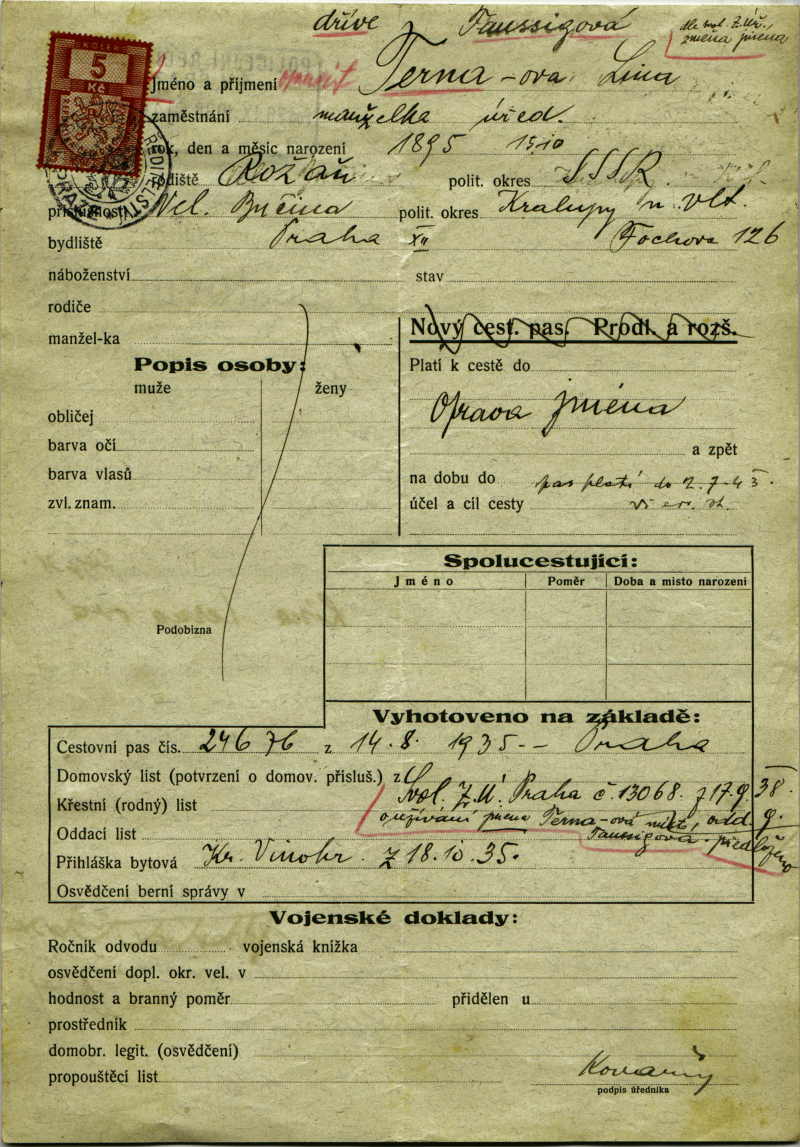 dříve Taussigová
změna jména
KOLEK
5
Kč
Jméno a přijmení opravit Terna-ova Lina
zaměstnání manželka úřed.
rok, den a měsíc narození 1895 15.10
rodiště Rožaň polit. okres SSSR
příslušnost Vel. Bučina polit. okres Kralupy n. Vlt.
bydliště Praha XII Fochova 126
náboženství stav
rodiče
manžel-ka
Nový cest. pas. Prodl. a rozš.
Popis osoby:
muže ženy
obličej
barva očí
barva vlasů
zvl. znam.
Platí k cestě do
Oprava jména
a zpět
na dobu do pas platí do 2.7.43.
účel a cíl cesty
Podobizna
Spolucestující:
Jméno Poměr Doba a místo narození
Vyhotoveno na základě:
Cestovní pas čís. 24676 z 14.8. 1935 - Praha
Domovský list (potvrzení o domov. přísluš.) z
Křestní (rodný) list Svol. Z.Ú. Praha č. 13068. z 17.9.38.
o užívání jména Terna-ová míst,
Oddací list Taussigová. předloženo
Přihláška bytová Kr. Vinohr. z 18.10.35.
Osvědčení berní správy v
Vojenské doklady:
Ročník odvodu vojenská knížka
osvědčení dopl. okr. vel. v
hodnost a branný poměr přidělen u
prostředník
domobr. legit. (osvědčení)
propouštěcí list
podpis úředníka